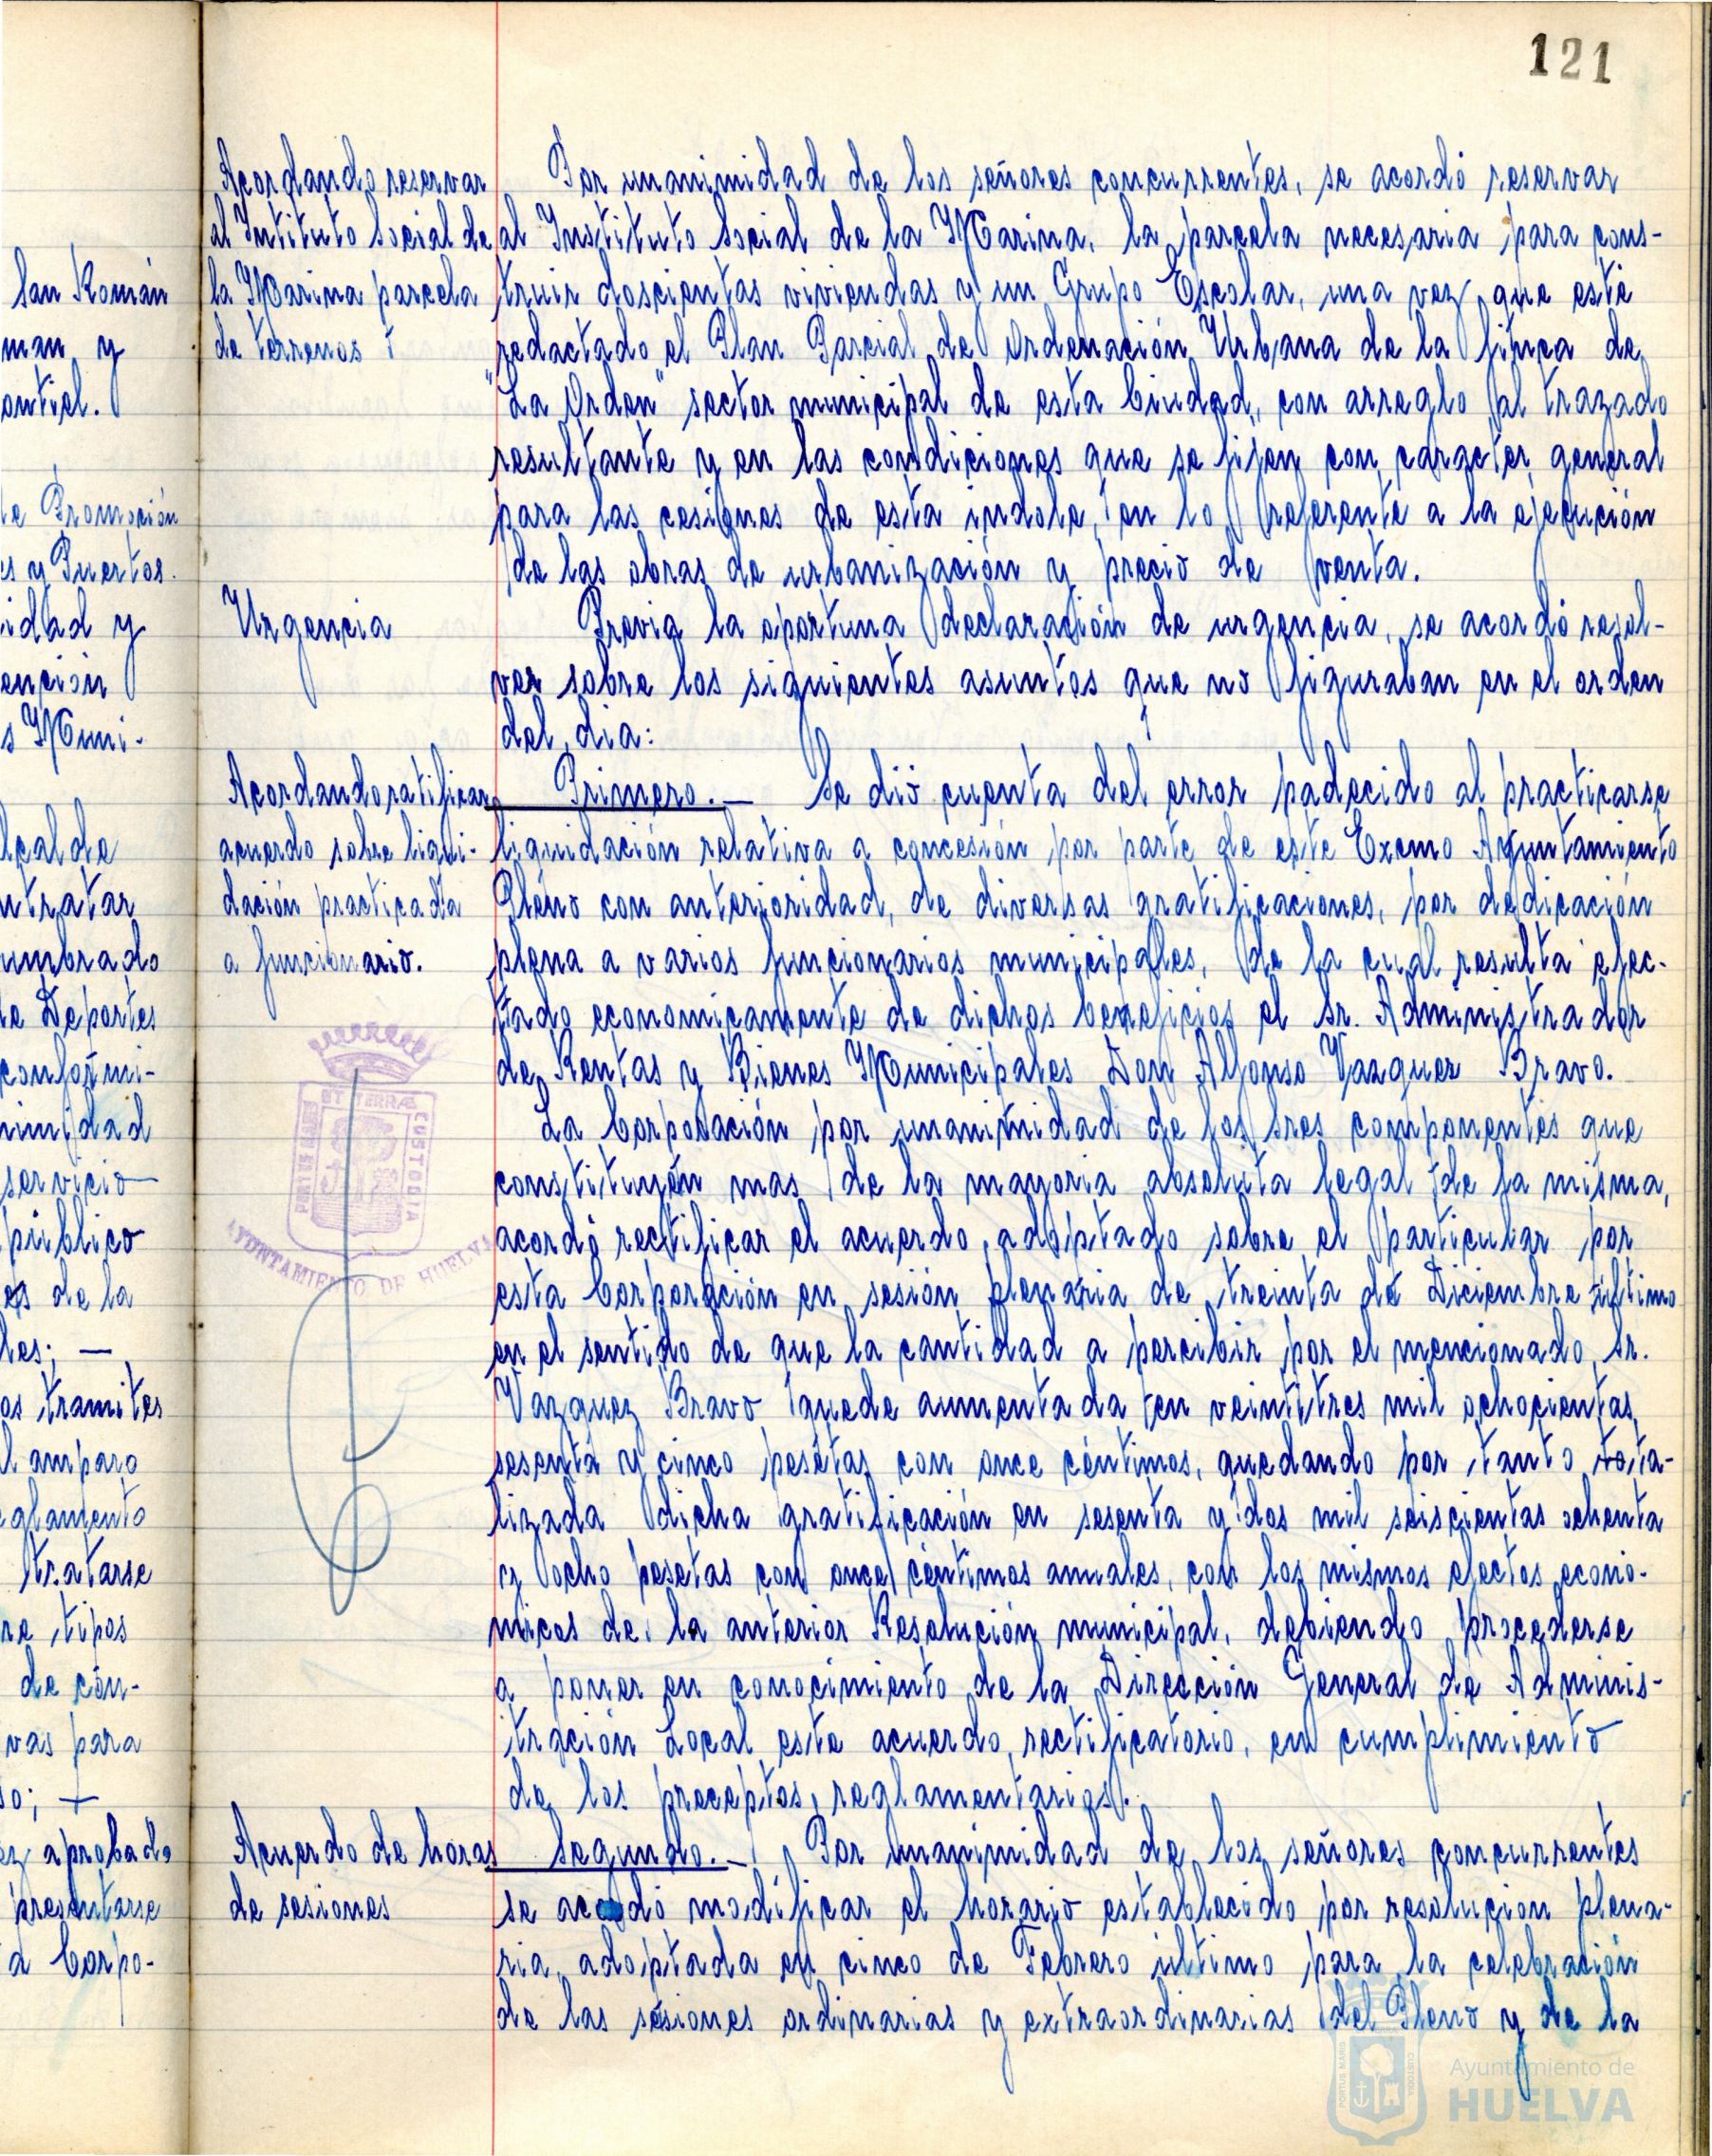 121
San Román
man y
ontiel.
te Promoción
es y Puertos.
idad y
ención
s Muni-
lcalde
ntratar
umbrado
te Deportes
conformi-
nimidad
servicio
público
es de la
les; —
os tramites
l amparo
eglamento
tratarse
re tipos
de con-
vas para
so; —
ez aprobado
presentarse
a Corpo-
Acordando reservar
al Intituto Social de
la Marina parcela
de terrenos
Por unanimidad de los señores concurrentes, se acordó reservar
al Instituto Social de la Marina, la parcela necesaria para cons-
truir doscientas viviendas y un Grupo Escolar, una vez que esté
redactado el Plan Parcial de Ordenación Urbana de la finca de
"La Orden" sector municipal de esta Ciudad, con arreglo al trazado
resultante y en las condiciones que se fijen con caracter general
para las cesiones de esta indole, en lo referente a la ejecución
de las obras de urbanización y precio de venta.
Urgencia
Previa la oportuna declaración de urgencia, se acordó resol-
ver sobre los siguientes asuntos que no figuraban en el orden
del dia:
Acordando ratificar
acuerdo sobre liqui-
dación practicada
a funcionario.
Primero.— Se dió cuenta del error padecido al practicarse
liquidación relativa a concesión por parte de este Excmo Ayuntamiento
Pleno con anterioridad, de diversas gratificaciones, por dedicación
plena a varios funcionarios municipales, de la cual resulta efec-
tado economicamente de dichos beneficios el Sr. Administrador
de Rentas y Bienes Municipales Don Alfonso Vazquez Bravo.
La Corporación por unanimidad de los sres componentes que
constituyen mas de la mayoria absoluta legal de la misma,
acordó rectificar el acuerdo adoptado sobre el particular por
esta Corporación en sesión plenaria de treinta de Diciembre último
en el sentido de que la cantidad a percibir por el mencionado Sr.
Vazquez Bravo quede aumentada en veintitres mil ochocientas
sesenta y cinco pesetas con once céntimos, quedando por tanto tota-
lizada dicha gratificación en sesenta y dos mil seiscientas ochenta
y ocho pesetas con once céntimos anuales, con los mismos efectos econó-
micos de la anterior Resolución municipal, debiendo procederse
a poner en conocimiento de la Dirección General de Adminis-
tración Local este acuerdo rectificatorio, en cumplimiento
de los preceptos reglamentarios.
PORTUS MARIS ET TERRÆ CUSTODIA
AYUNTAMIENTO DE HUELVA
Acuerdo de horas
de sesiones
Segundo.— Por unanimidad de los señores concurrentes
se acodó modificar el horario establecido por resolucion plena-
ria adoptada en cinco de Febrero último para la celebración
de las sesiones ordinarias y extraordinarias del Pleno y de la
Ayuntamiento de
HUELVA